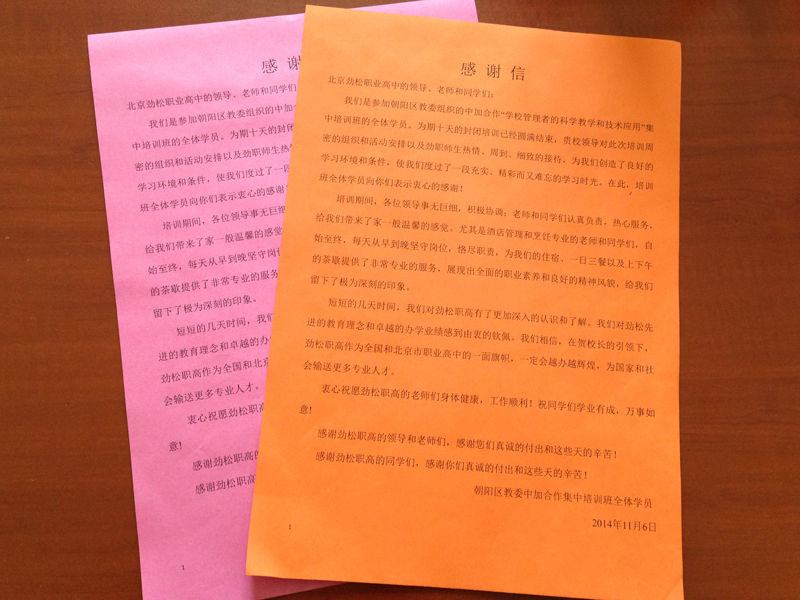 感谢
北京劲松职业高中的领导、老师和同学们
我们是参加朝阳区教委组织的中加
中培训班的全体学员。为期十天的封闭
密的组织和活动安排以及劲职师生热情
学习环境和条件，使我们度过了一段充
班全体学员向你们表示衷心的感谢
培训期间，各位领导事无巨细
给我们带来了家一般温馨的感觉
始至终，每天从早到晚坚守岗位
的茶歇提供了非常专业的服务
留下了极为深刻的印象。
短短的几天时间，我们
进的教育理念和卓越的办学业
劲松职高作为全国和北京
会输送更多专业人才。
衷心祝愿劲松职高
意！
感谢劲松职高的
感谢劲松职高
1
感谢信
北京劲松职业高中的领导、老师和同学们：
我们是参加朝阳区教委组织的中加合作“学校管理者的科学教学和技术应用”集
中培训班的全体学员。为期十天的封闭培训已经圆满结束，贵校领导对此次培训周
密的组织和活动安排以及劲职师生热情、周到、细致的接待，为我们创造了良好的
学习环境和条件，使我们度过了一段充实、精彩而又难忘的学习时光。在此，培训
班全体学员向你们表示衷心的感谢！
培训期间，各位领导事无巨细，积极协调；老师和同学们认真负责，热心服务，
给我们带来了家一般温馨的感觉。尤其是酒店管理和烹饪专业的老师和同学们，自
始至终，每天从早到晚坚守岗位，恪尽职责，为我们的住宿、一日三餐以及上下午
的茶歇提供了非常专业的服务，展现出全面的职业素养和良好的精神风貌，给我们
留下了极为深刻的印象。
短短的几天时间，我们对劲松职高有了更加深入的认识和了解。我们对劲松先
进的教育理念和卓越的办学业绩感到由衷的钦佩。我们相信，在贺校长的引领下，
劲松职高作为全国和北京市职业高中的一面旗帜，一定会越办越辉煌，为国家和社
会输送更多专业人才。
衷心祝愿劲松职高的老师们身体健康，工作顺利！祝同学们学业有成，万事如
意！
感谢劲松职高的领导和老师们，感谢您们真诚的付出和这些天的辛苦！
感谢劲松职高的同学们，感谢你们真诚的付出和这些天的辛苦！
朝阳区教委中加合作集中培训班全体学员
2014年11月6日
1